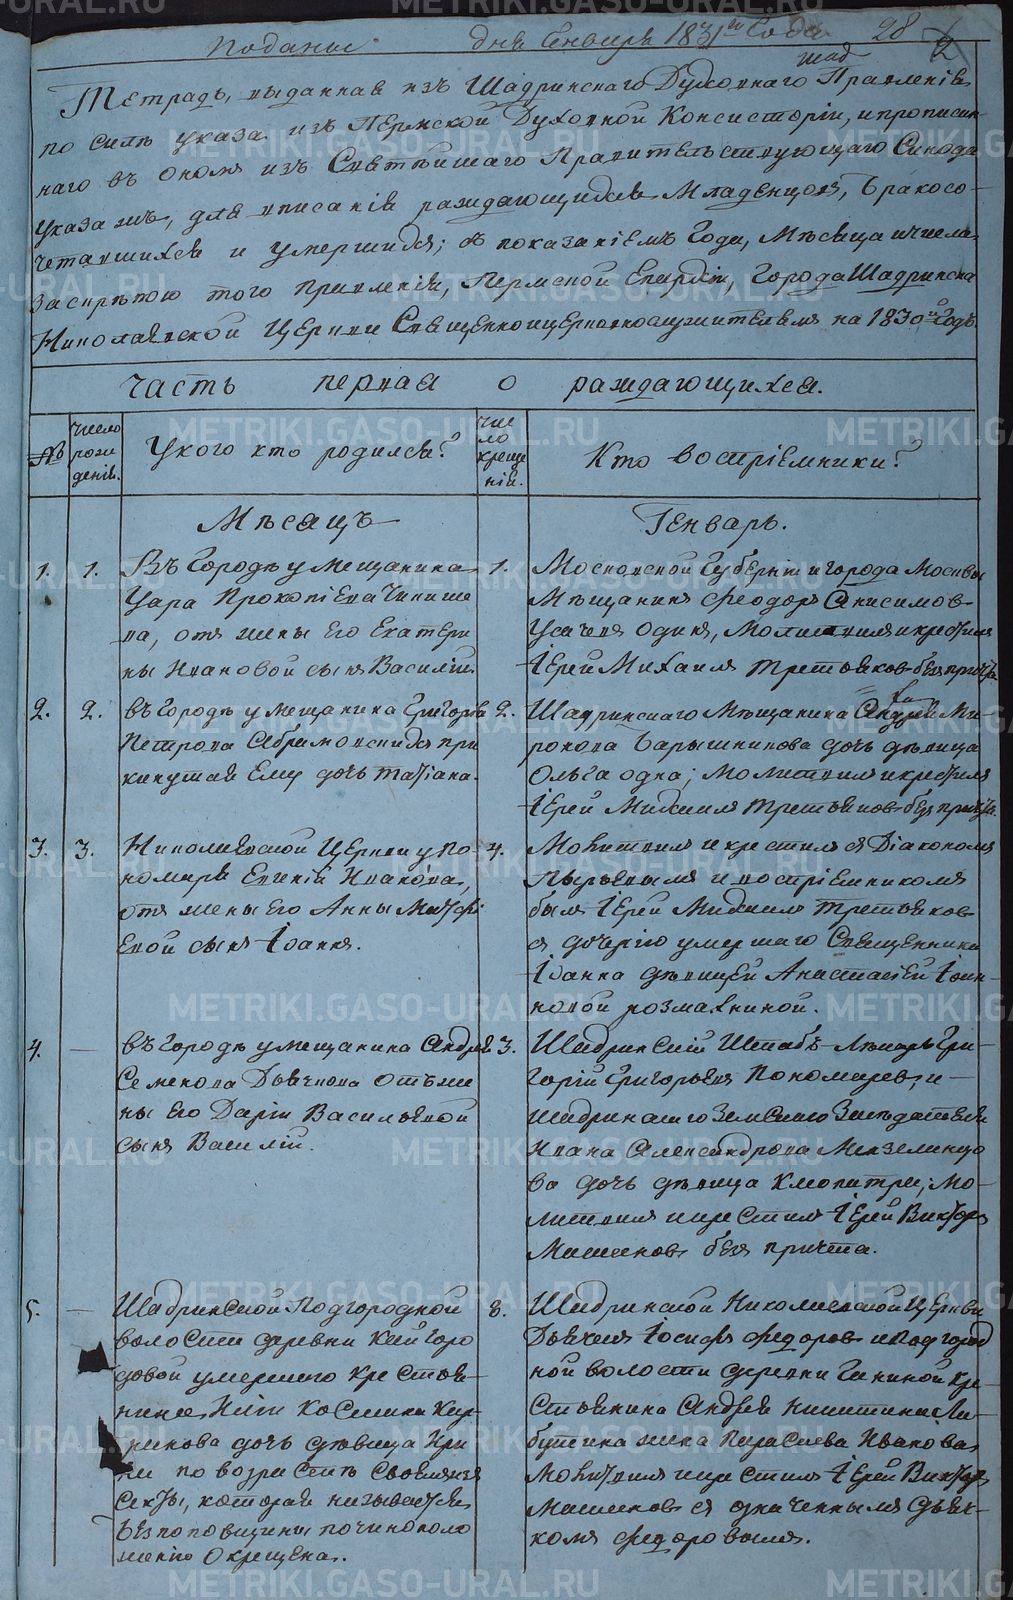 поданы дня Генваря 1831го Года 28
Тетрадь, выданная изъ Шадринскаго Духовнаго Правленія,
по силѣ указа изъ Пермской Духовной Консисторіи, и прописан-
наго въ ономъ изъ Святѣйшаго Правительствующаго Синода
указа, для вписанія раждающихся Младенцовъ, Бракосо-
четавшихся и умершихъ; съ показаніемъ Года, Мѣсяца и числа,
за скрѣпою того Правленія, Пермской Епархіи, Города Шадринска
Николаевской Церкви Священноцерковнослужителямъ на 1830й Годъ.
Часть первая о раждающихся.
№
число рожденія.
У кого кто родился?
число крещенія.
Кто воспріемники?
Мѣсяцъ Генварь.
1. 1. Въ Городѣ у мещанина
Уара Прокопіева
отъ жены его Екатери
ны Ивановой сынъ Василій.
1. Московской Губерніи и города Москвы
Мѣщанинъ Феодоръ Анисимовъ
Усачевъ одинъ, молитвилъ и крестилъ
Іерей Михаилъ Третьяковъ безъ причта
2. 2. въ Городѣ у мещанина Григорья
Петрова Абрамовскихъ при
кинутая ему дочь Татіана.
2. Шадринскаго Мѣщанина Андрея Ми-
ронова Барышникова дочь дѣвица
Ольга одна; молитвилъ и крестилъ
Іерей Михаилъ Третьяковъ безъ причта.
3. 3. Николаевской Церкви у по
номаря Евгенія Иванова,
отъ жены его Анны Матфі
евой сынъ Іоаннъ.
4. Молитвилъ и крестилъ съ Діакономъ
и воспріемникомъ
былъ Іерей Михаилъ Третьяковъ
съ дочерію умершаго Священника
Іоанна дѣвицей Анастасіей Іоан-
новой
4. — въ Городѣ у мещанина Андрея
Семенова Дьячкова отъ же
ны его Дарьи Васильевой
сынъ Василій.
3. Шадринскій Штабъ-Лѣкарь Гри-
горій Григорьевъ Пономаревъ, и
Шадринскаго Земскаго Засѣдателя
Ивана Александрова Мензелинцо
ва дочь дѣвица Клеопатра; мо-
литвилъ и крестилъ Іерей Викторъ
безъ причта.
5. — Шадринской Подгородной
волости деревни Кайгоро
довой умершаго крестья-
нина
дочь дѣвица Ири
на по возрастѣ
секты, которая называется
безпоповщины по чиноположенію
окрещена.
8. Шадринской Николаевской Церкви
Дьячекъ Іосифъ Федоровъ и Подгород
ной волости деревни Ганиной кре-
стьянина Андрея Никитина
жена Параскева Иванова
молитвилъ и крестилъ Іерей Викторъ
съ означеннымъ дьяч-
комъ Федоровымъ.
METRIKI.GASO-URAL.RU